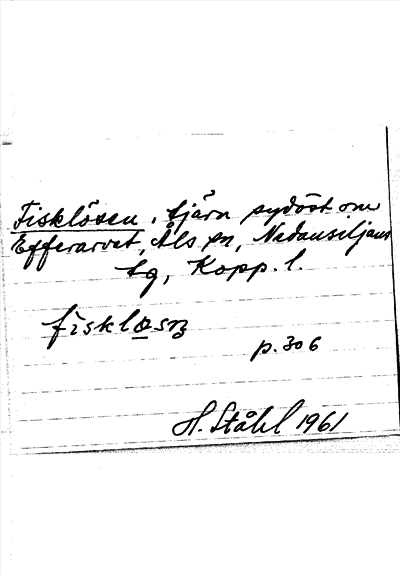 Fisklösen, tjärn sydöst om
Efferarvet, Åls sn, Nedansiljans
tg, Kopp. l.
fisklo̲sn̥
p. 306
H. Ståhl 1961